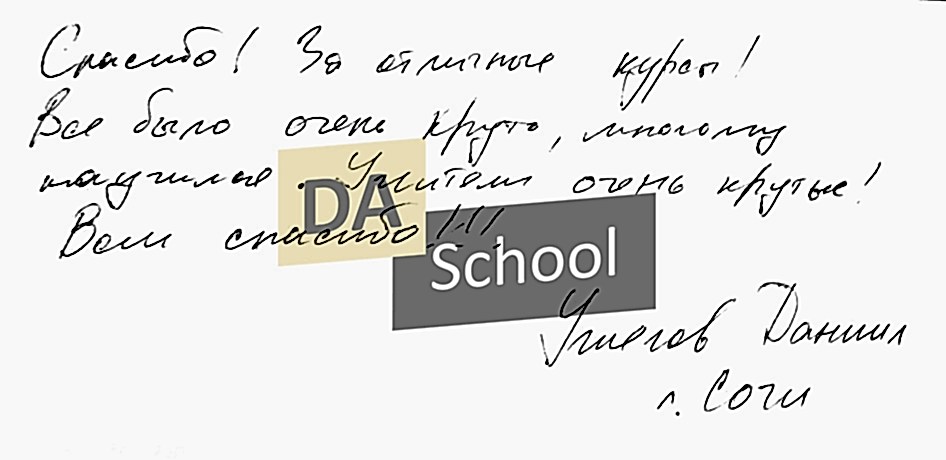 Спасибо! За отличные курсы!
Все было очень круто, многому
научился. Учителя очень крутые!
DA
Всем спасибо!!!
School
Даниил
г. Сочи